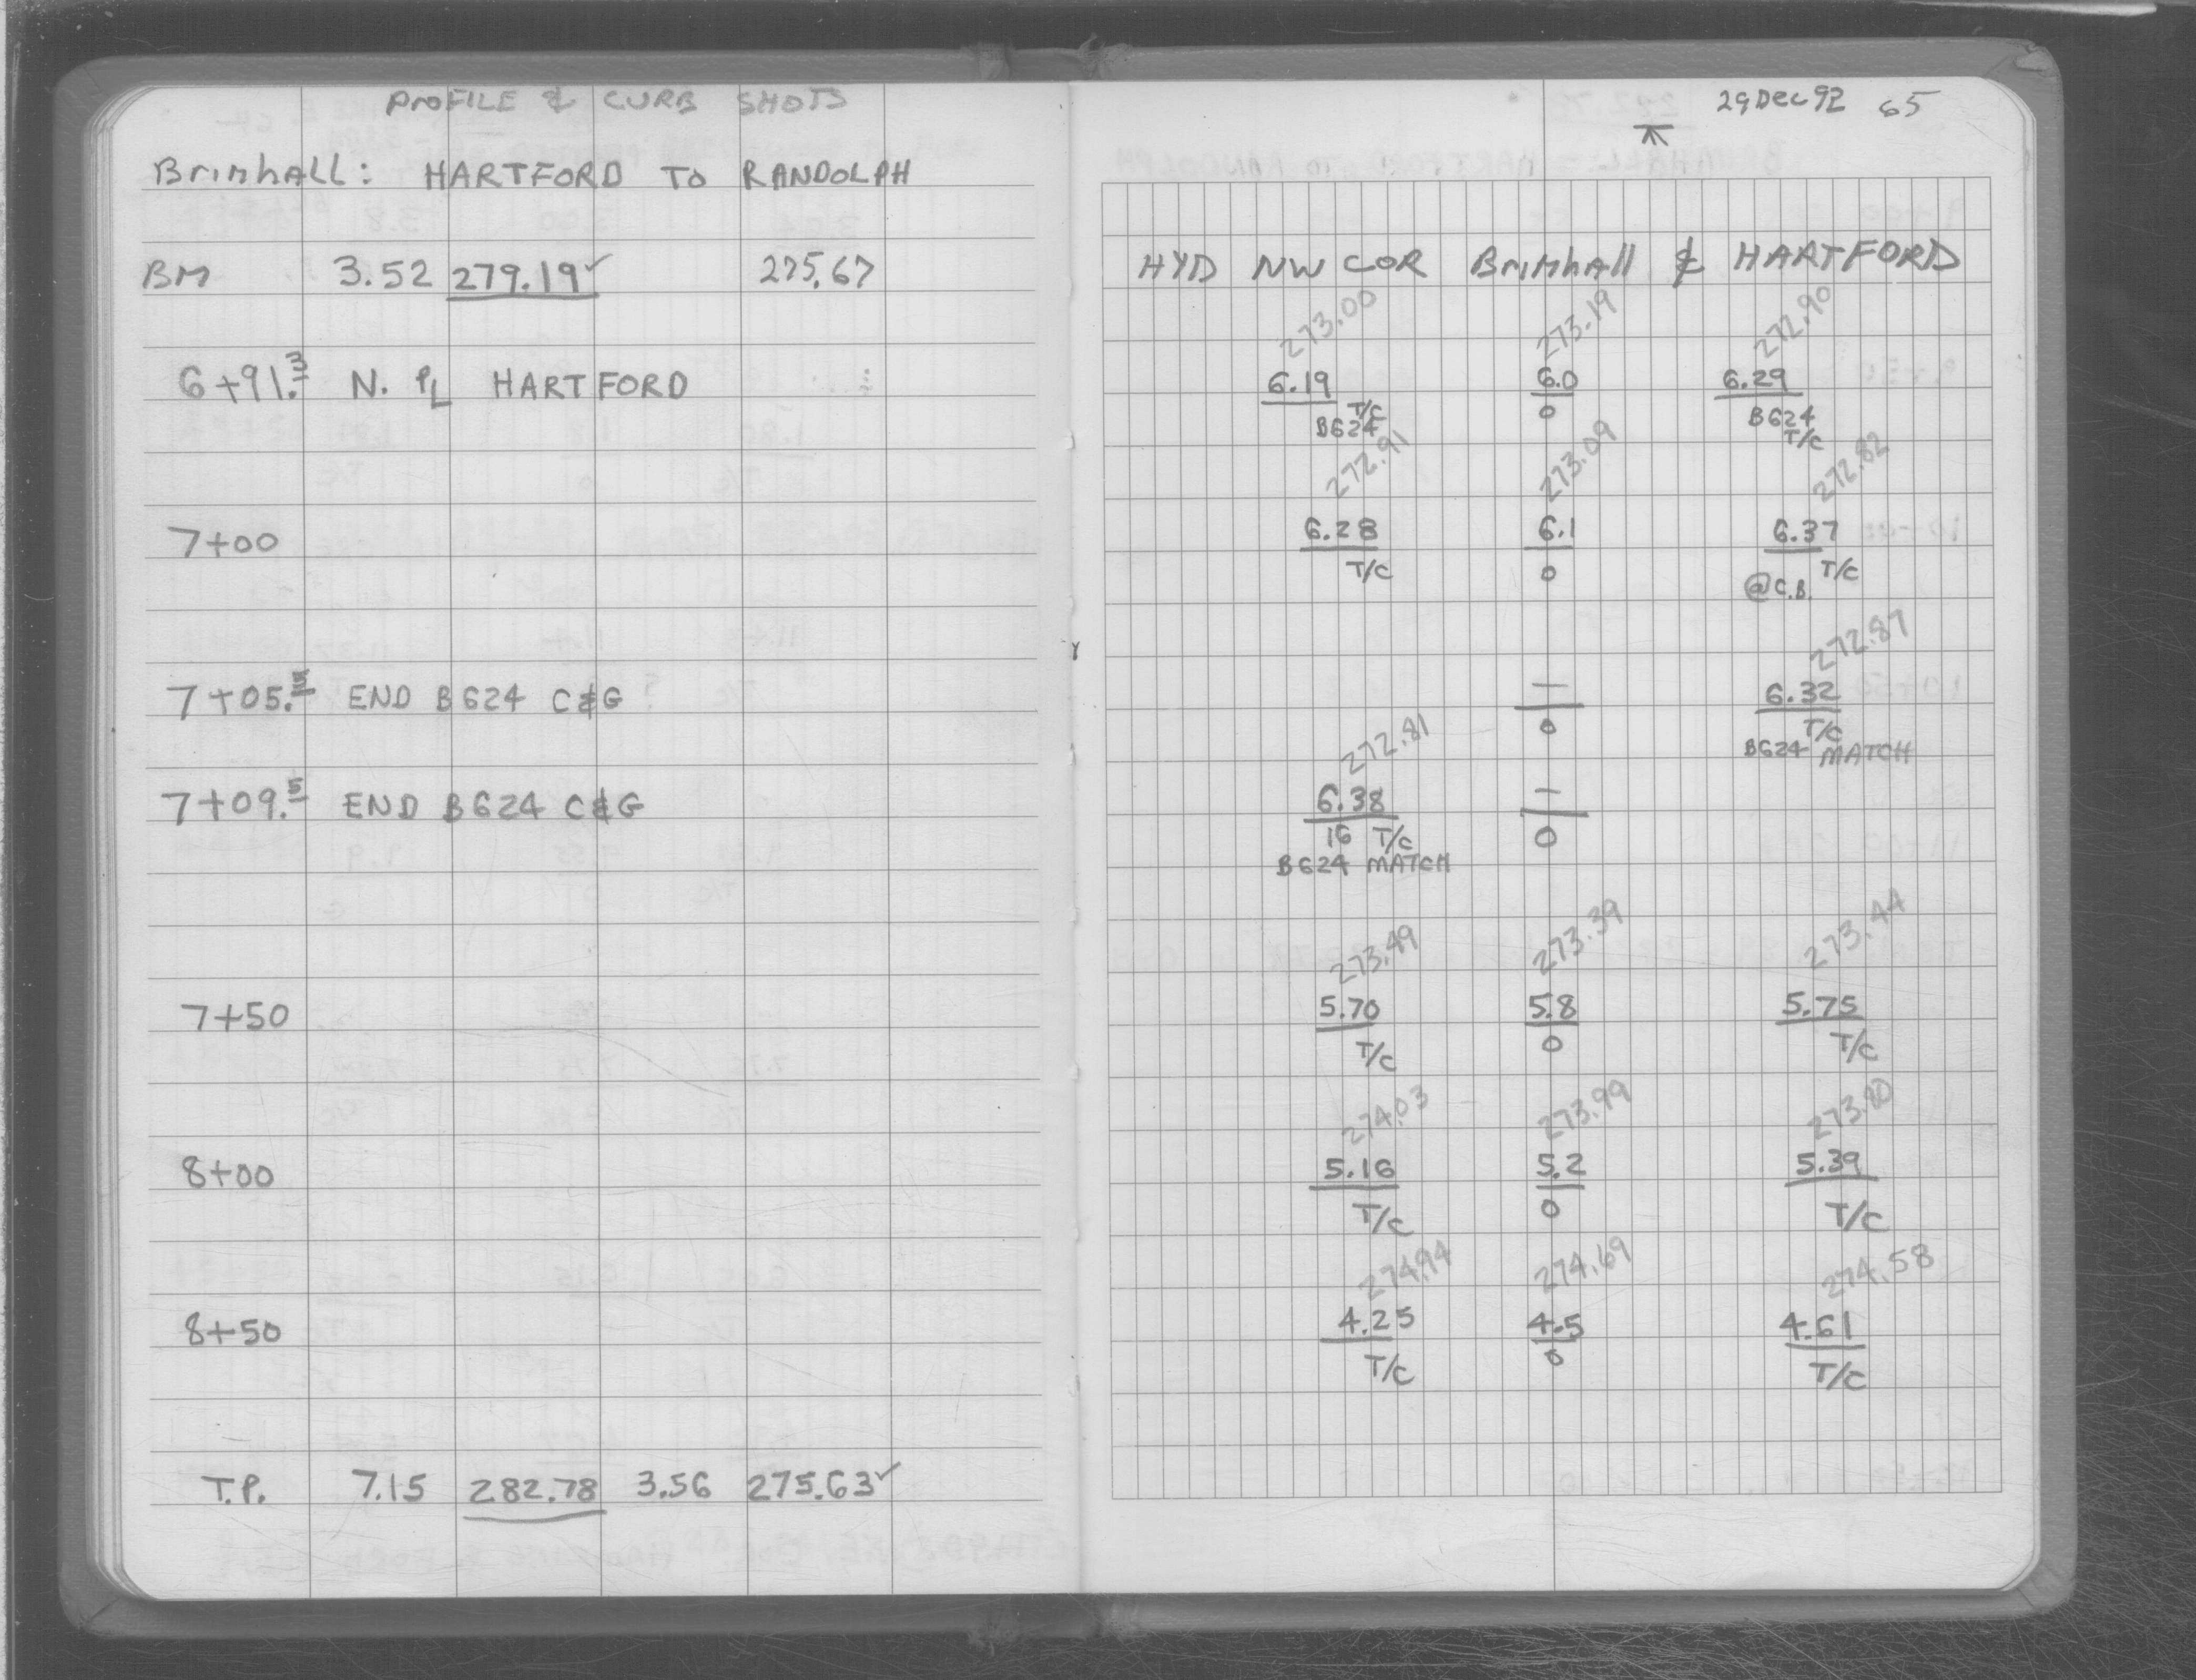 PROFILE & CURB SHOTS
Brimhall: HARTFORD TO RANDOLPH
BM 3.52 279.19✓ 275.67
6+91.3 N. PL HARTFORD
7+00
7+05.5 END B624 C&G
7+09.5 END B624 C&G
7+50
8+00
8+50
T.P. 7.15 282.78 3.56 275.63✓
29 Dec 92 65
HYD NW COR Brimhall & HARTFORD
273.00 273.19 272.90
6.19 6.0 6.29
T/C 0 B624
B624 T/C
272.91 273.09 272.82
6.28 6.1 6.37
T/C 0 T/C
@C.B.
272.87
— 6.32
0 T/C
B624 MATCH
272.81
6.38 —
16 T/C 0
B624 MATCH
273.49 273.39 273.44
5.70 5.8 5.75
T/C 0 T/C
274.03 273.99 273.80
5.16 5.2 5.39
T/C 0 T/C
274.94 274.69 274.58
4.25 4.5 4.61
T/C 0 T/C